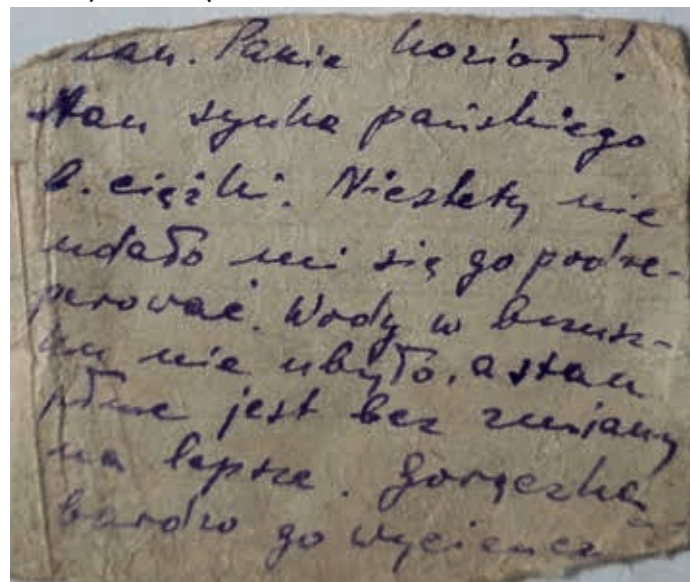 Szan. Panie Kozioł!
Stan synka pańskiego
b. ciężki. Niestety nie
udało mi się go podre-
perować. Wody w brzusz-
ku nie ubyło, a stan
płuc jest bez zmiany
na lepsze. Gorączka
bardzo go wycieńcz